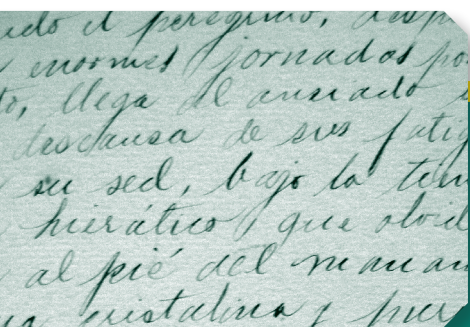 do el peregrino, desp
enormes jornadas po
to, llega al ansiado
descansa de sus fatig
su sed, bajo la ten
hierático, que olvid
al pié del manan
cristalina y pur